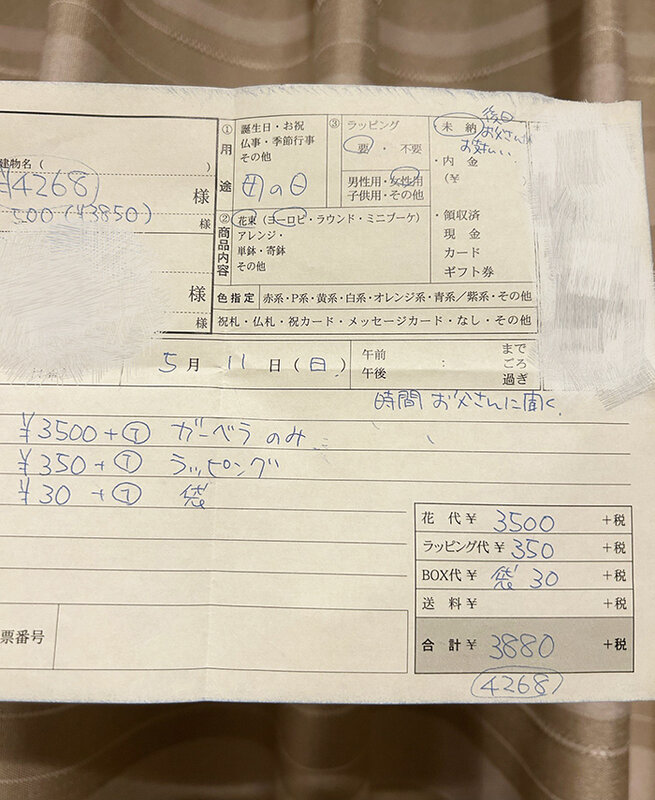 建物名(
)
¥4268
様
500(¥3850)
様
様
様
①用途
誕生日・お祝
仏事・季節行事
その他
母の日
②商品内容
花束(ヨーロピ・ラウンド・ミニブーケ)
アレンジ・
単鉢・寄鉢
その他
③ラッピング
要・不要
男性用・女性用
子供用・その他
未納
後日
お父さん
お支払い
・内金
(¥
)
・領収済
現金
カード
ギフト券
色指定 赤系・P系・黄系・白系・オレンジ系・青系/紫系・その他
祝札・仏札・祝カード・メッセージカード・なし・その他
5月11日(日)
午前
午後
:
まで
ごろ
過ぎ
時間 お父さんに聞く
¥3500+T ガーベラのみ
¥350+T ラッピング
¥30+T 袋
花代¥ 3500 +税
ラッピング代¥ 350 +税
BOX代¥ 袋30 +税
送料¥ +税
合計¥ 3880 +税
4268
票番号